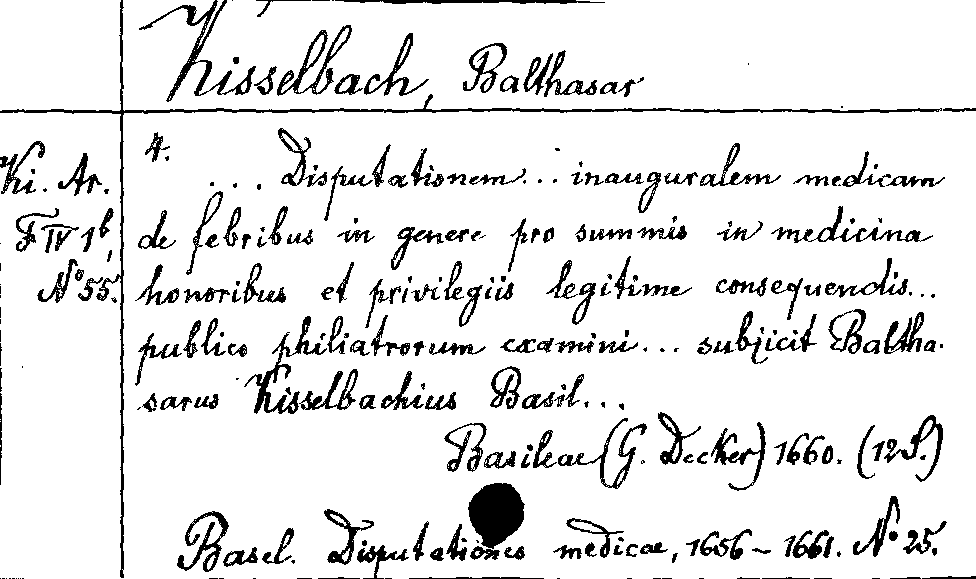 Kisselbach, Balthasar
4.
Ki. Ar. ... Disputationem ... inauguralem medicam
F IV 1b, de febribus in genere pro summis in medicina
No 55. honoribus et privilegiis legitime consequendis...
publico philiatrorum examini ... subjicit Baltha-
sarus Kisselbachius Basil...
Basileae (G. Decker) 1660. (12 S.)
Basel. Disputationes medicae, 1656 - 1661. No 25.